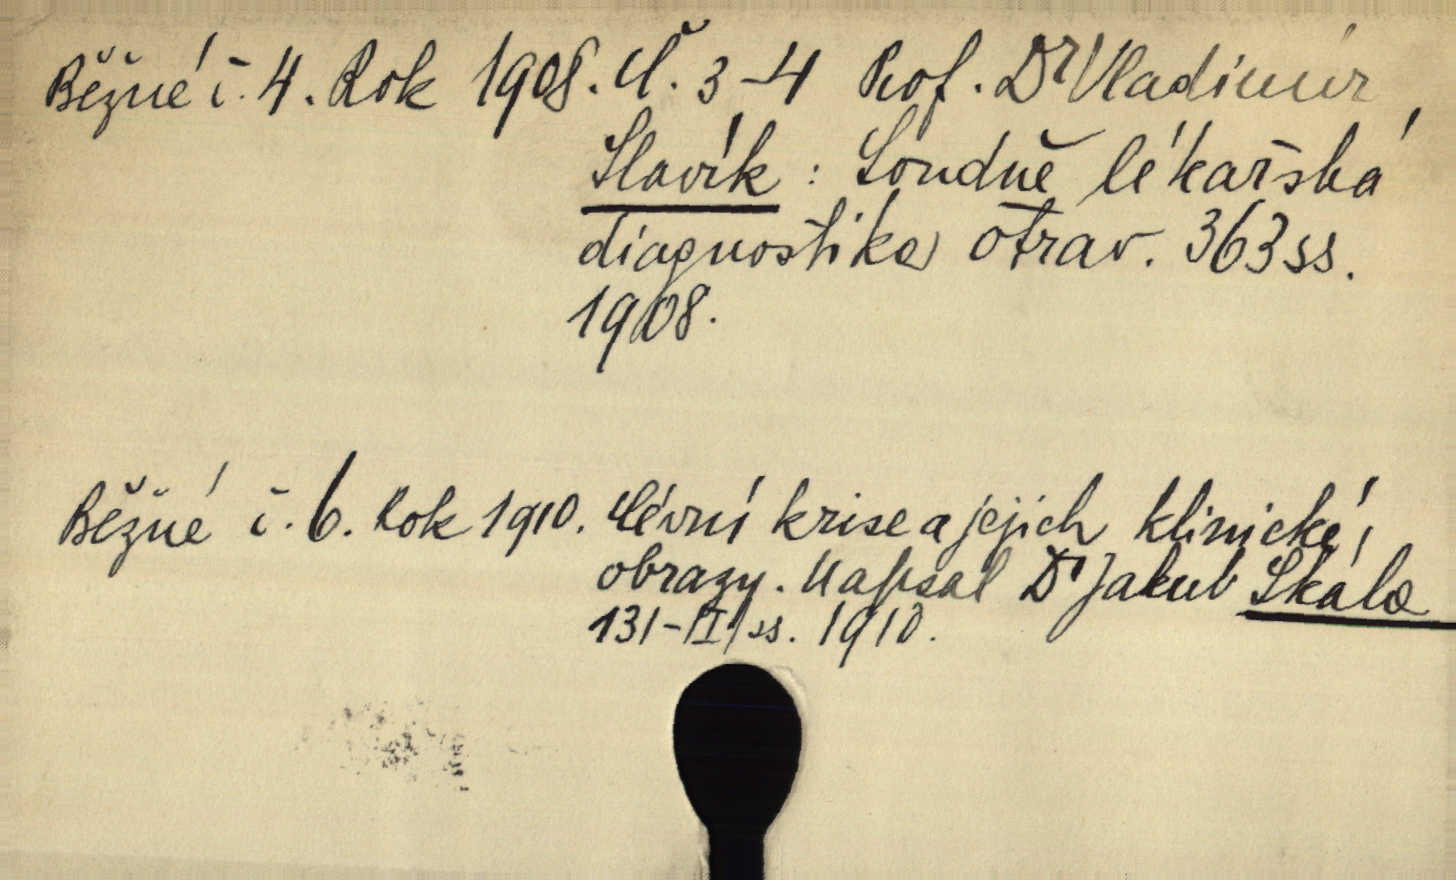 Běžné č. 4. Rok 1908. Č. 3-4 Prof. Dr Vladimír
Slavík: Soudně lékařská
diagnostika otrav. 363 ss.
1908.
Běžné č. 6. Rok 1910. Cévní krise a jejich klinické
obrazy. Napsal Dr Jakub Skála
131-II/ss. 1910.